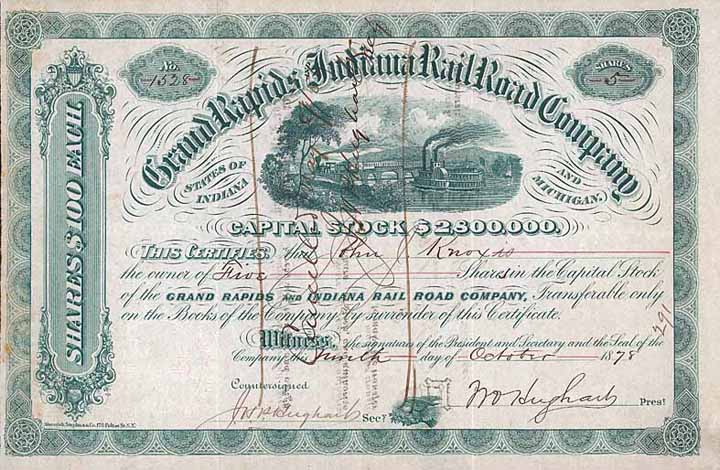 No. 1528
SHARES 5
Grand Rapids & Indiana Rail Road Company
STATES OF INDIANA
AND MICHIGAN.
SHARES $100 EACH
CAPITAL STOCK $2800,000.
THIS CERTIFIES, that John Knox is
the owner of Five Shares in the Capital Stock
of the GRAND RAPIDS AND INDIANA RAIL ROAD COMPANY, Transferable only
on the Books of the Company, by surrender of this Certificate.
Witness, the signature of the President and Secretary and the Seal of the
Company, this day of October 1878
Countersigned
Secy
Prest